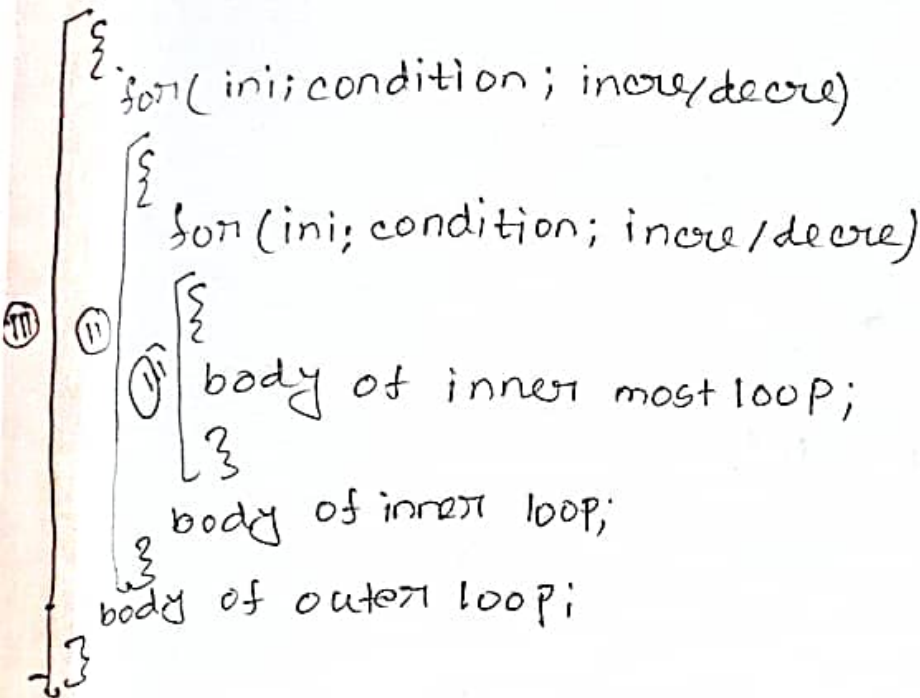 {
for( ini; condition ; incre/decre)
{
for (ini; condition; incre/decre)
{
body of inner most loop;
}
body of inner loop;
}
body of outer loop;
}